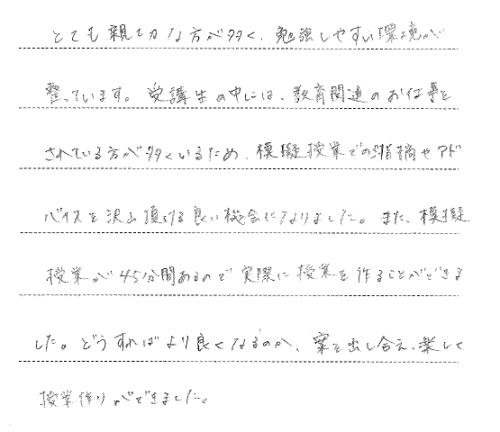 とても親切な方が多く、勉強しやすい環境が
整っています。受講生の中には、教育関連のお仕事を
されている方が多くいるため、模擬授業での指摘やアド
バイスを沢山頂ける良い機会になりました。また、模擬
授業が45分間あるので実際に授業を作ることができま
した。どうすればより良くなるのか、案を出し合え、楽しく
授業作りができました。